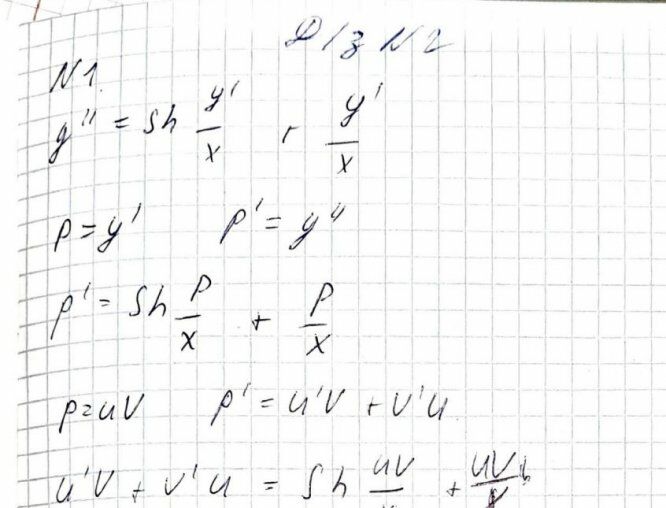 Д/з N2
N1.
y'' = sh y'/x + y'/x
p = y' p' = y''
p' = sh p/x + p/x
p = uv p' = u'v + v'u
u'v + v'u = sh uv/x + uv/x